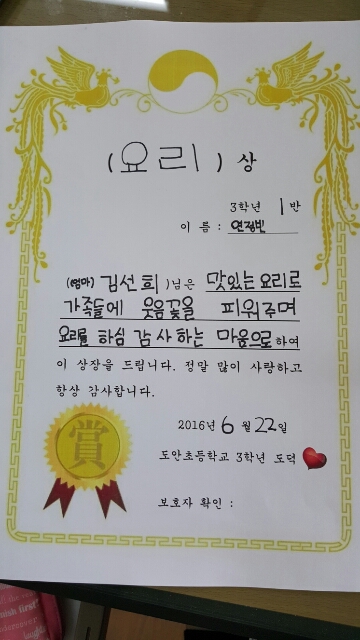 (요리) 상
3학년 1반
이 름 : 연정빈
(엄마) 김선희 )님은 맛있는 요리로
가족들에 웃음꽃을 피워주며
요리를 하심 감사하는 마음으로 하여
이 상장을 드립니다. 정말 많이 사랑하고
항상 감사합니다.
2016년 6월 22일
도안초등학교 3학년 도덕
보호자 확인 :
賞